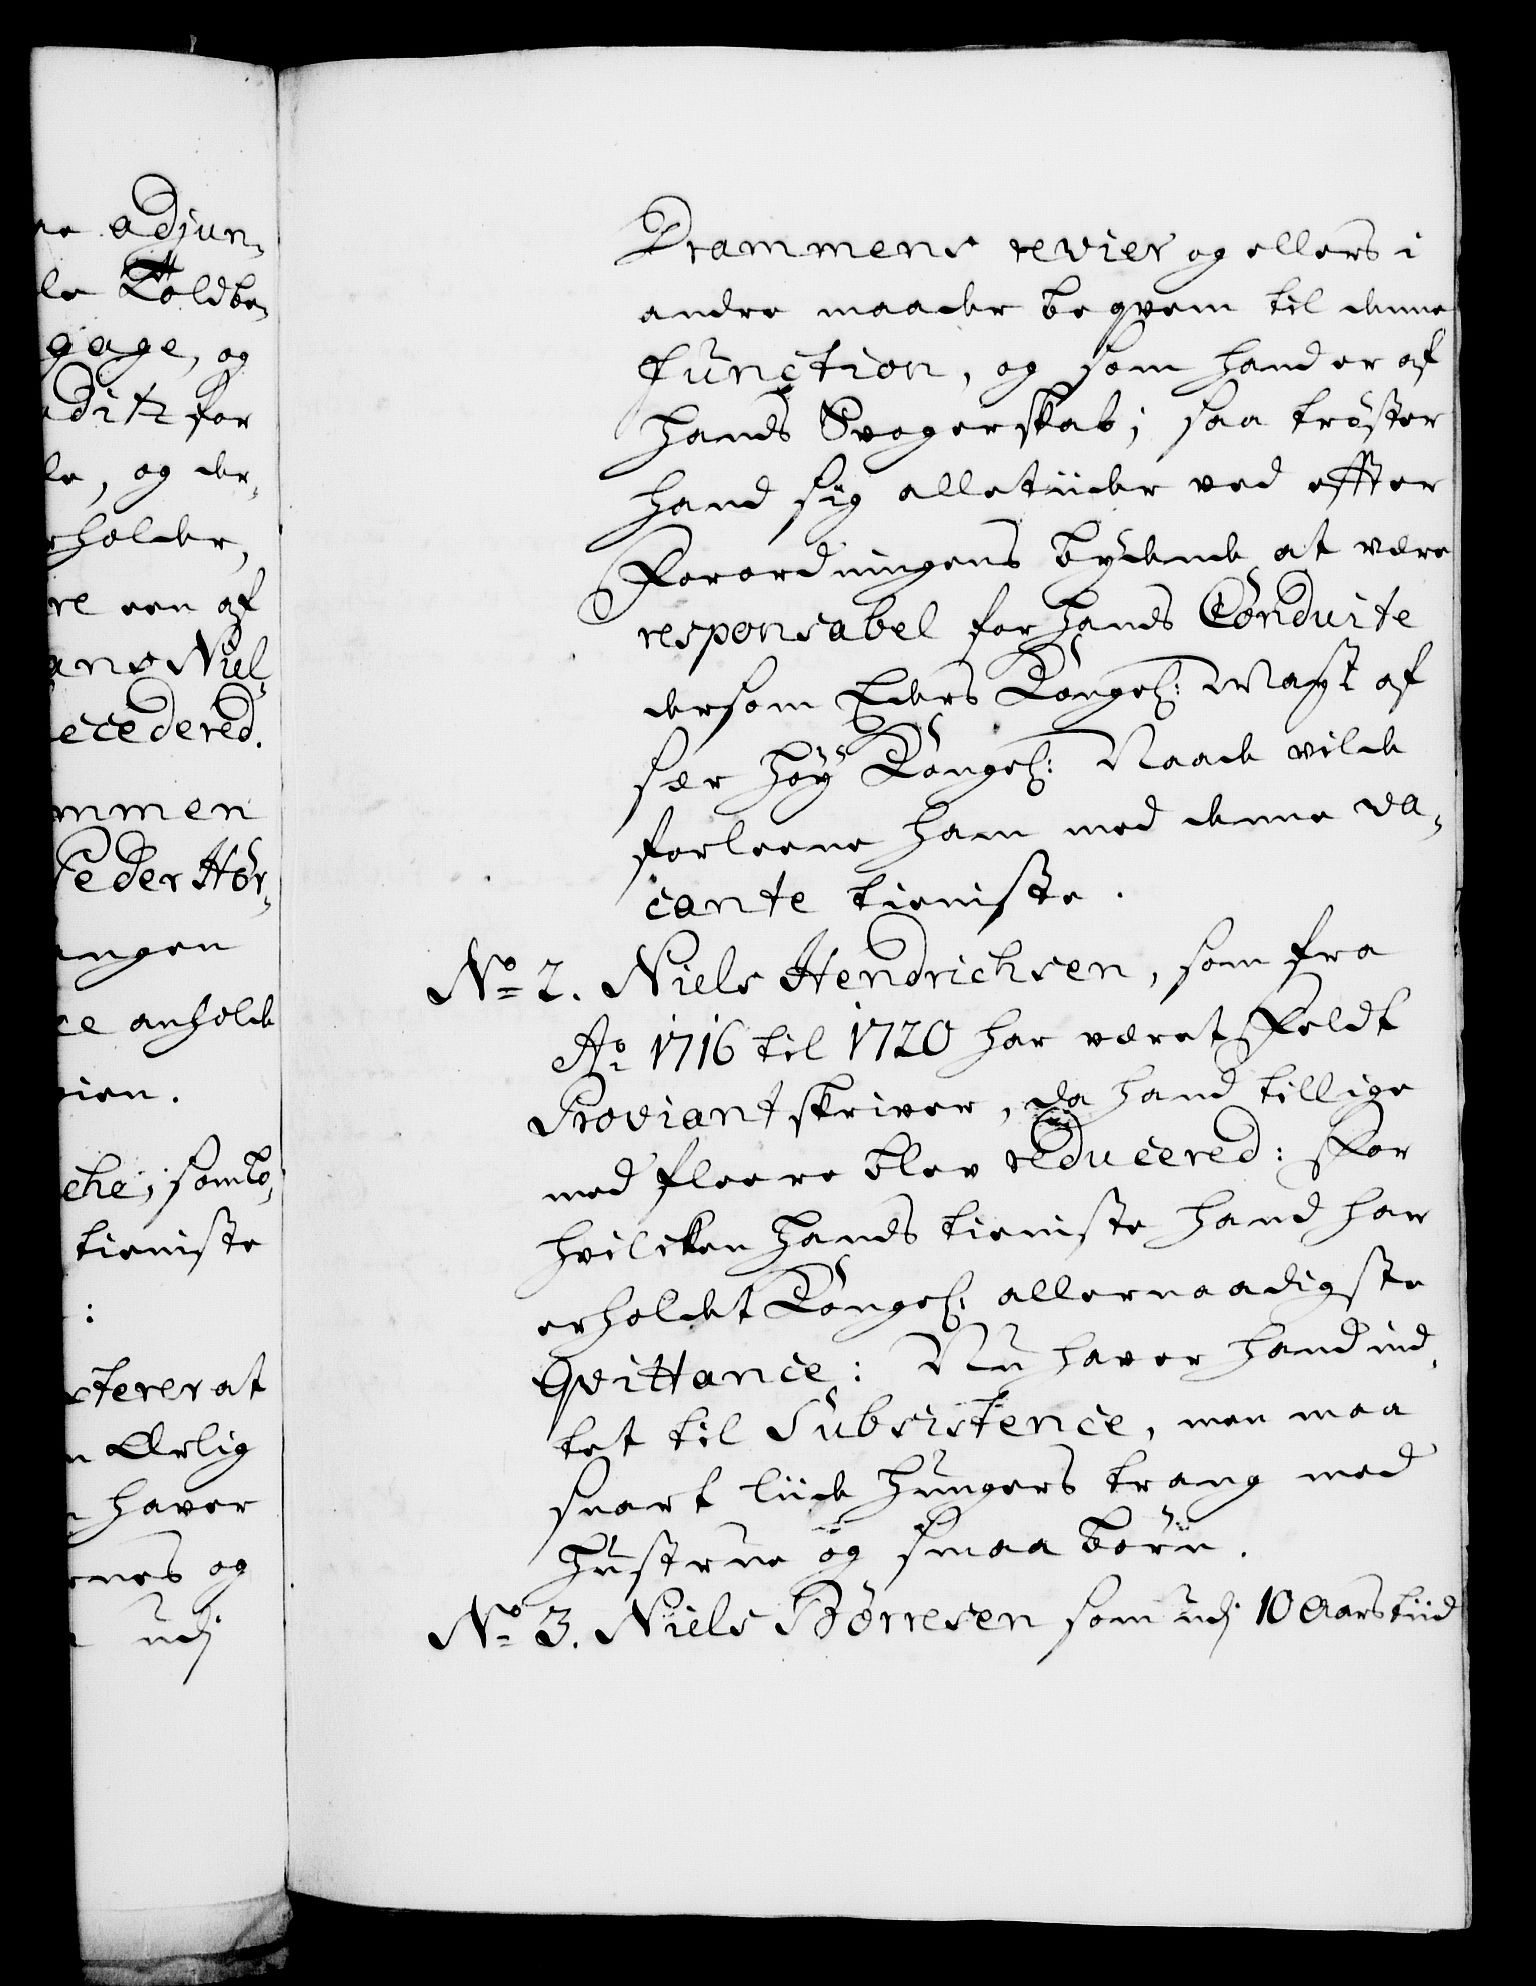 ne adjun-
le Toldbe-
gage, og
ditz for
le, og der-
rholder,
re een af
ans Niel-
ecedered.
mmen
Peder Hör-
ngen
ce anholde
ien.
che, som to-
tieniste
:
sterer at
n Ærlig
haver
nes og
udj
Drammens revier og ellers i
andre maader beqvem til denne
function, og som hand er af
hands Svogerskab; saa trøster
hand sig alletiider ved effter
Forordningens bydende at være
responsabel for hands Conduite
dersom Eders Kongel: Mayt af
sær høy Kongel: Naade vilde
forleene ham med denne va-
cante tieniste.
No 2. Niels Hendrichsen, som fra
Ao 1716 til 1720 har været Feldt
Proviantskriver, da hand tillige
med fleere blev reducered: For
hvilcken hands tieniste hand har
erholdet Kongel: allernaadigste
Qvittance: Nu haver hand ind-
tet til Subsistence, men maa
snart liide hungers trang med
Hustrue og smaa børn.
No 3. Niels Börresen som udj 10 Aars tiid